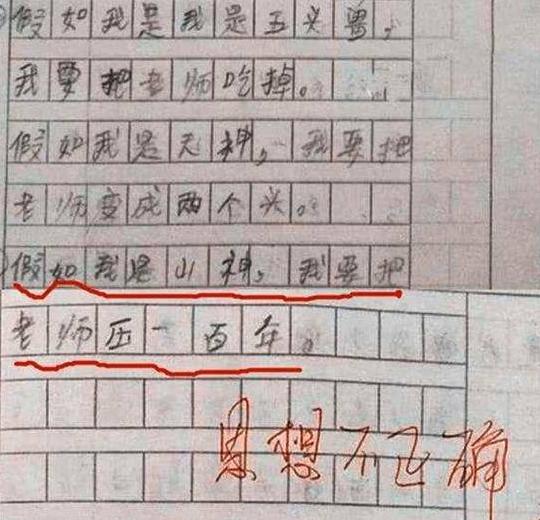 假如我是我是五头兽，
我要把老师吃掉。
假如我是天神，我要把
老师变成两个头。
假如我是山神，我要把
老师压一百年。
思想不正确